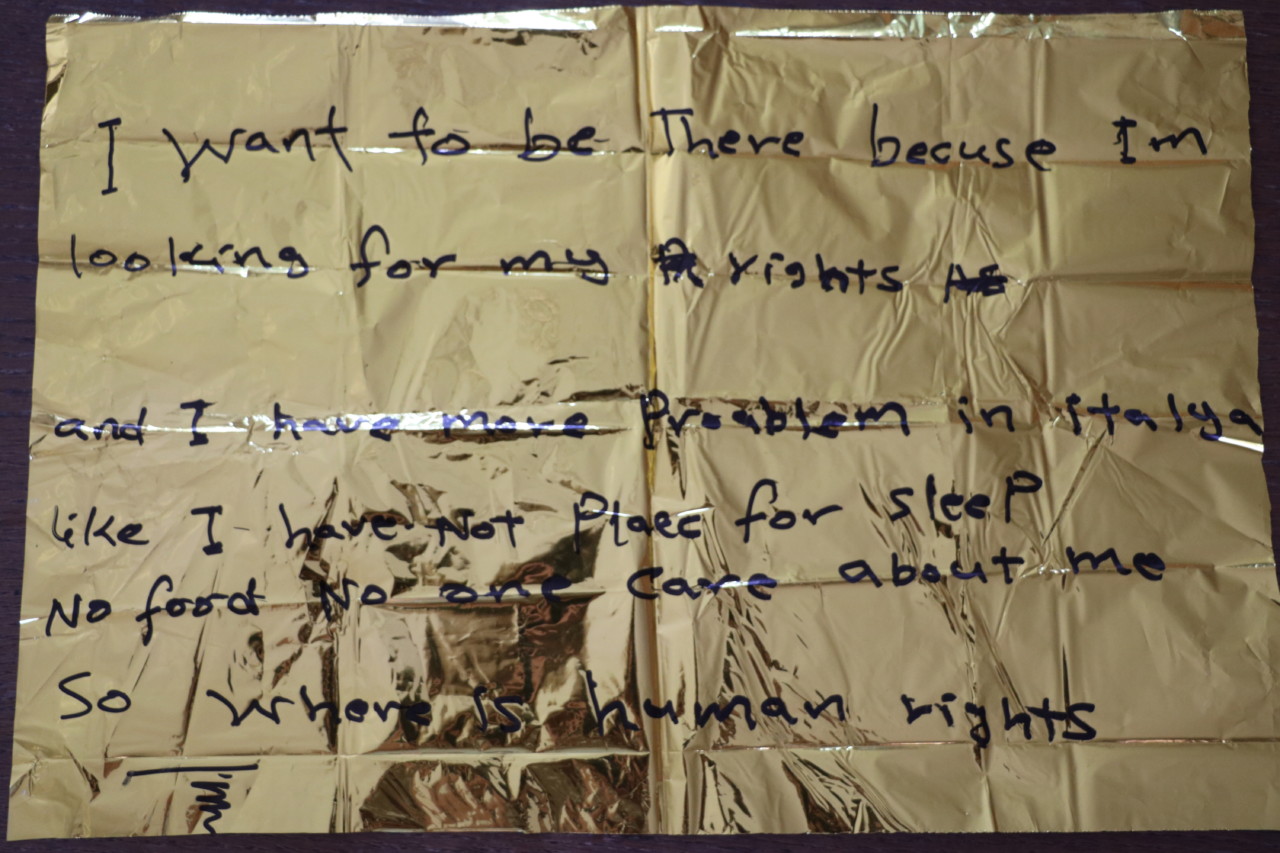 I want to be There becuse Im
looking for my rights
and I have more Proablem in italya
like I have Not Plaec for sleep
No food No one care about me
So where is human rights